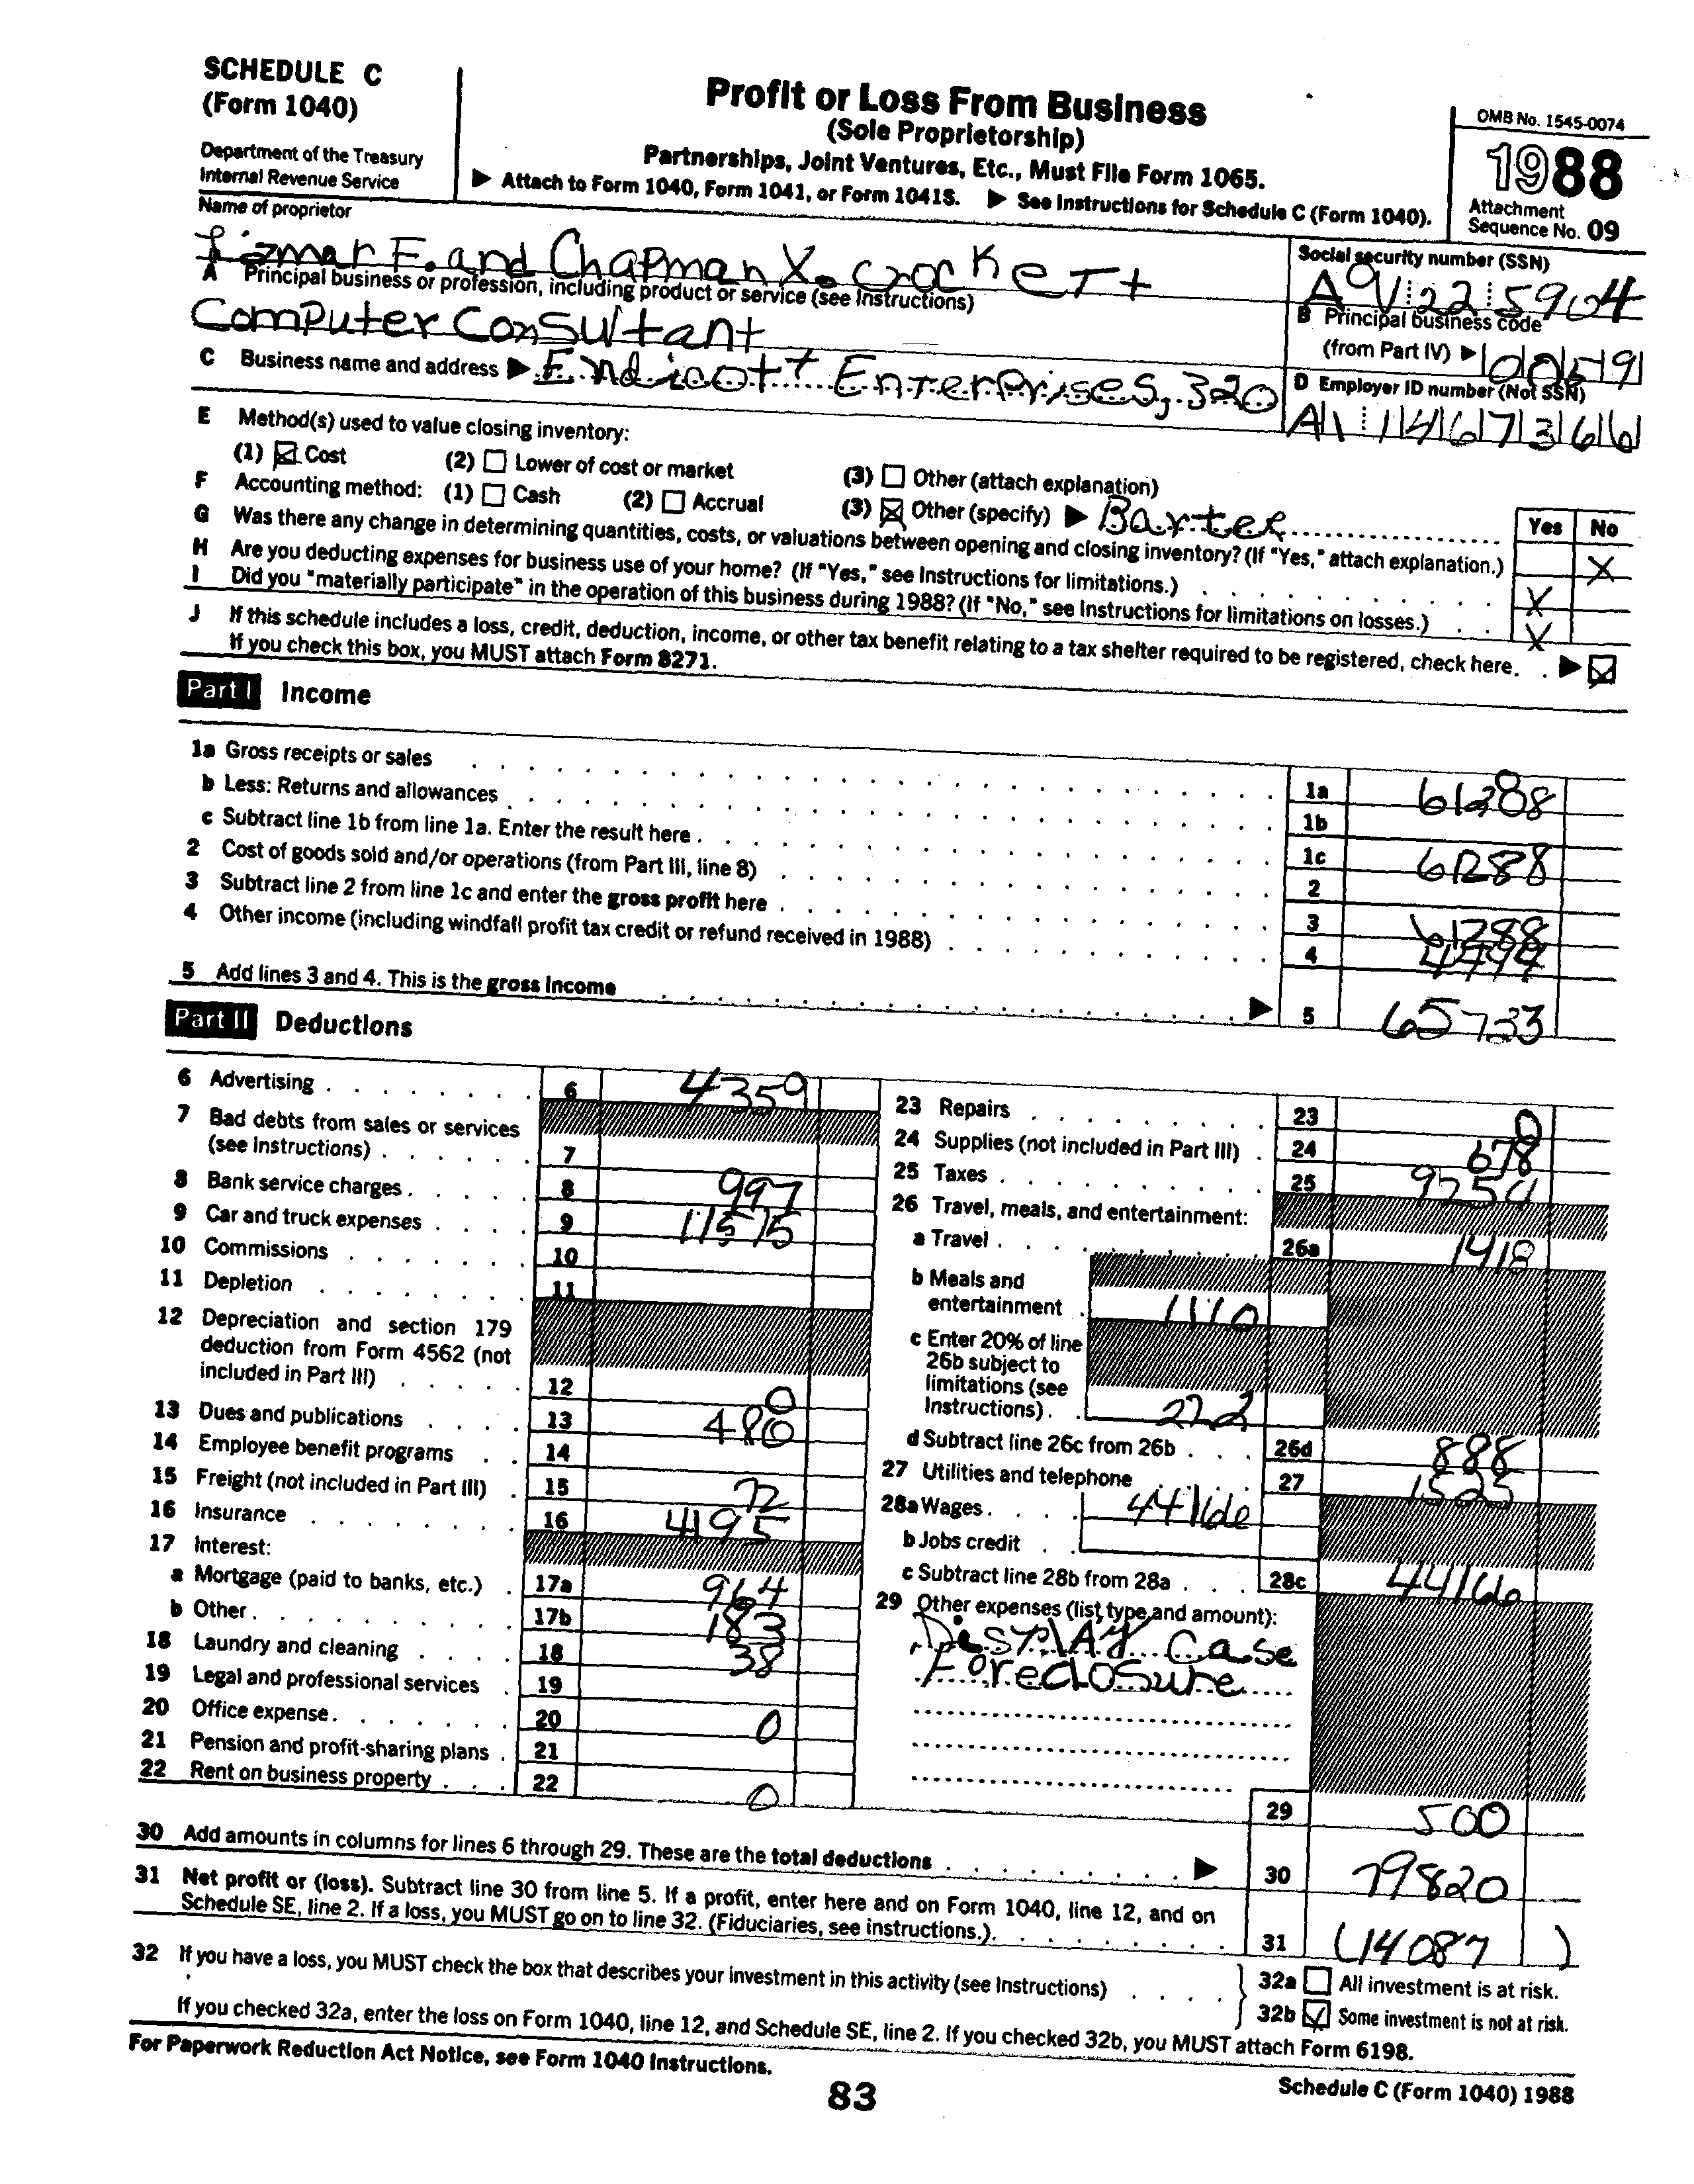 SCHEDULE C
(Form 1040)
Department of the Treasury
Internal Revenue Service
Profit or Loss From Business
(Sole Proprietorship)
Partnerships, Joint Ventures, Etc., Must File Form 1065.
▶ Attach to Form 1040, Form 1041, or Form 1041S. ▶ See Instructions for Schedule C (Form 1040).
OMB No. 1545-0074
1988
Attachment
Sequence No. 09
Name of proprietor
F. and Chapman X. Crockett
Social security number (SSN)
22 5904
A Principal business or profession, including product or service (see Instructions)
Computer Consultant
B Principal business code
(from Part IV) ▶
C Business name and address ▶ Endicott Enterprises, 320
D Employer ID number (Not SSN)
A1 1467366
E Method(s) used to value closing inventory:
(1) ☒ Cost (2) ☐ Lower of cost or market (3) ☐ Other (attach explanation)
F Accounting method: (1) ☐ Cash (2) ☐ Accrual (3) ☒ Other (specify) ▶ Barter
Yes No
G Was there any change in determining quantities, costs, or valuations between opening and closing inventory? (If "Yes," attach explanation.) X
H Are you deducting expenses for business use of your home? (If "Yes," see Instructions for limitations.) X
I Did you "materially participate" in the operation of this business during 1988? (If "No," see Instructions for limitations on losses.) X
J If this schedule includes a loss, credit, deduction, income, or other tax benefit relating to a tax shelter required to be registered, check here. ▶ ☒
If you check this box, you MUST attach Form 8271.
Part I Income
1a Gross receipts or sales 1a 61288
b Less: Returns and allowances 1b
c Subtract line 1b from line 1a. Enter the result here 1c 61288
2 Cost of goods sold and/or operations (from Part III, line 8) 2
3 Subtract line 2 from line 1c and enter the gross profit here 3 61288
4 Other income (including windfall profit tax credit or refund received in 1988) 4
5 Add lines 3 and 4. This is the gross income ▶ 5 65733
Part II Deductions
6 Advertising 6 4359
7 Bad debts from sales or services
(see Instructions) 7
8 Bank service charges 8 997
9 Car and truck expenses 9 11575
10 Commissions 10
11 Depletion 11
12 Depreciation and section 179
deduction from Form 4562 (not
included in Part III) 12 0
13 Dues and publications 13 480
14 Employee benefit programs 14
15 Freight (not included in Part III) 15 72
16 Insurance 16 4195
17 Interest:
a Mortgage (paid to banks, etc.) 17a 964
b Other 17b 183
18 Laundry and cleaning 18 38
19 Legal and professional services 19
20 Office expense 20 0
21 Pension and profit-sharing plans 21
22 Rent on business property 22 0
23 Repairs 23 0
24 Supplies (not included in Part III) 24 678
25 Taxes 25 9254
26 Travel, meals, and entertainment:
a Travel 26a 1418
b Meals and
entertainment 1110
c Enter 20% of line
26b subject to
limitations (see
Instructions) 222
d Subtract line 26c from 26b 26d 888
27 Utilities and telephone 27 1525
28a Wages 44166
b Jobs credit
c Subtract line 28b from 28a 28c 44166
29 Other expenses (list type and amount):
Display Case
Foreclosure
29 500
30 Add amounts in columns for lines 6 through 29. These are the total deductions ▶ 30 79820
31 Net profit or (loss). Subtract line 30 from line 5. If a profit, enter here and on Form 1040, line 12, and on
Schedule SE, line 2. If a loss, you MUST go on to line 32. (Fiduciaries, see instructions.) 31 (14087 )
32 If you have a loss, you MUST check the box that describes your investment in this activity (see Instructions)
32a ☐ All investment is at risk.
32b ☒ Some investment is not at risk.
If you checked 32a, enter the loss on Form 1040, line 12, and Schedule SE, line 2. If you checked 32b, you MUST attach Form 6198.
For Paperwork Reduction Act Notice, see Form 1040 Instructions.
Schedule C (Form 1040) 1988
83